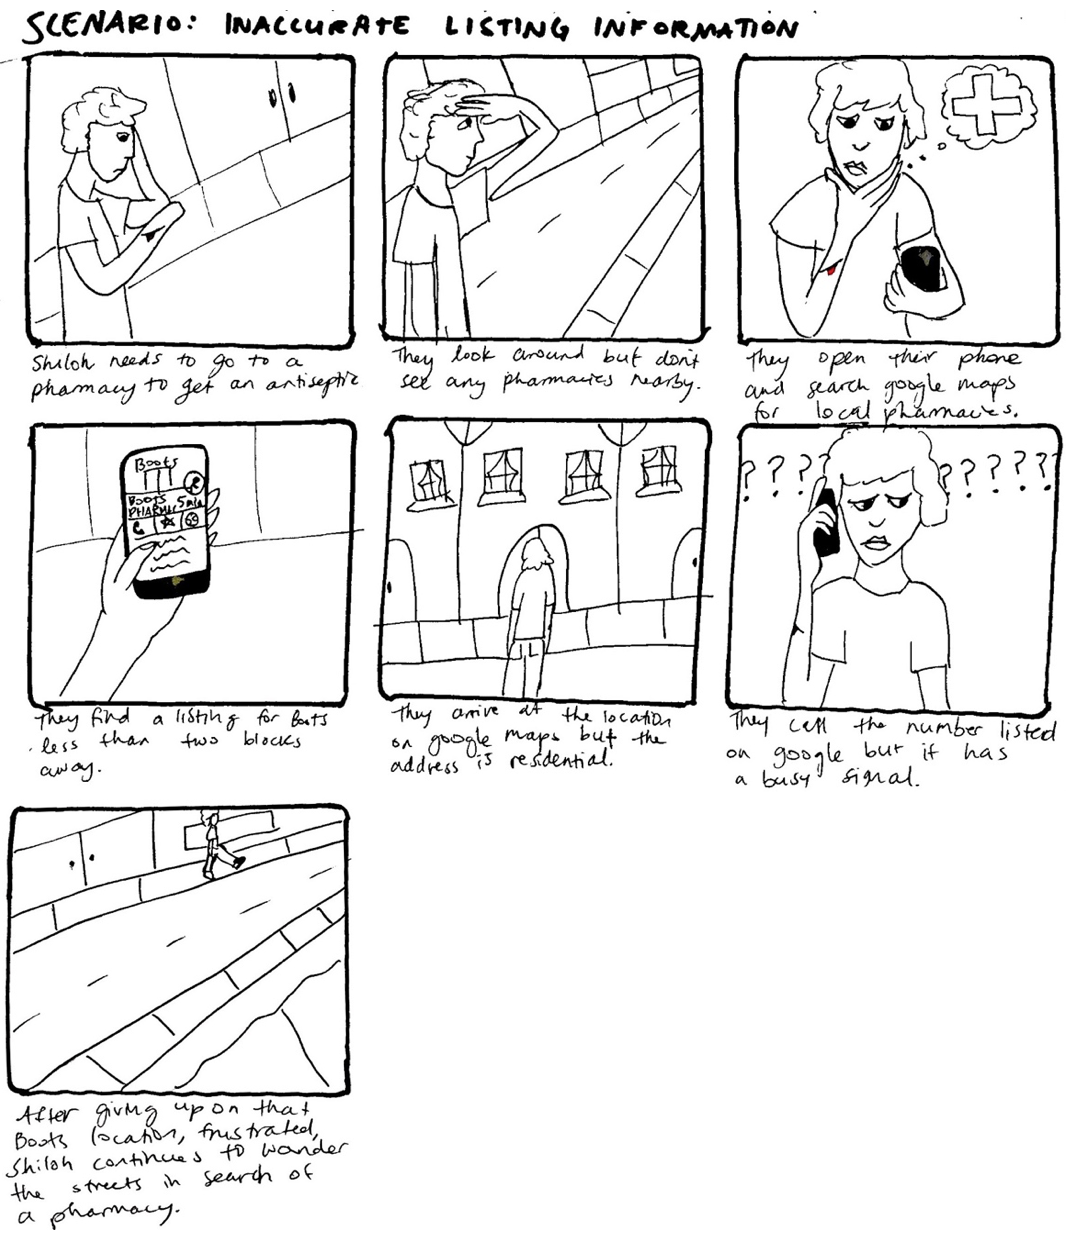 SCENARIO: INACCURATE LISTING INFORMATION
Shiloh needs to go to a
pharmacy to get an antiseptic
They look around but don't
see any pharmacies nearby.
They open their phone
and search google maps
for local pharmacies.
Boots
BOOTS
PHARMAC 5min
They find a listing for Boots
less than two blocks
away.
They arrive at the location
on google maps but the
address is residential.
? ? ? ? ? ? ? ? ?
They call the number listed
on google but it has
a busy signal.
After giving up on that
Boots location, frustrated,
Shiloh continues to wander
the streets in search of
a pharmacy.